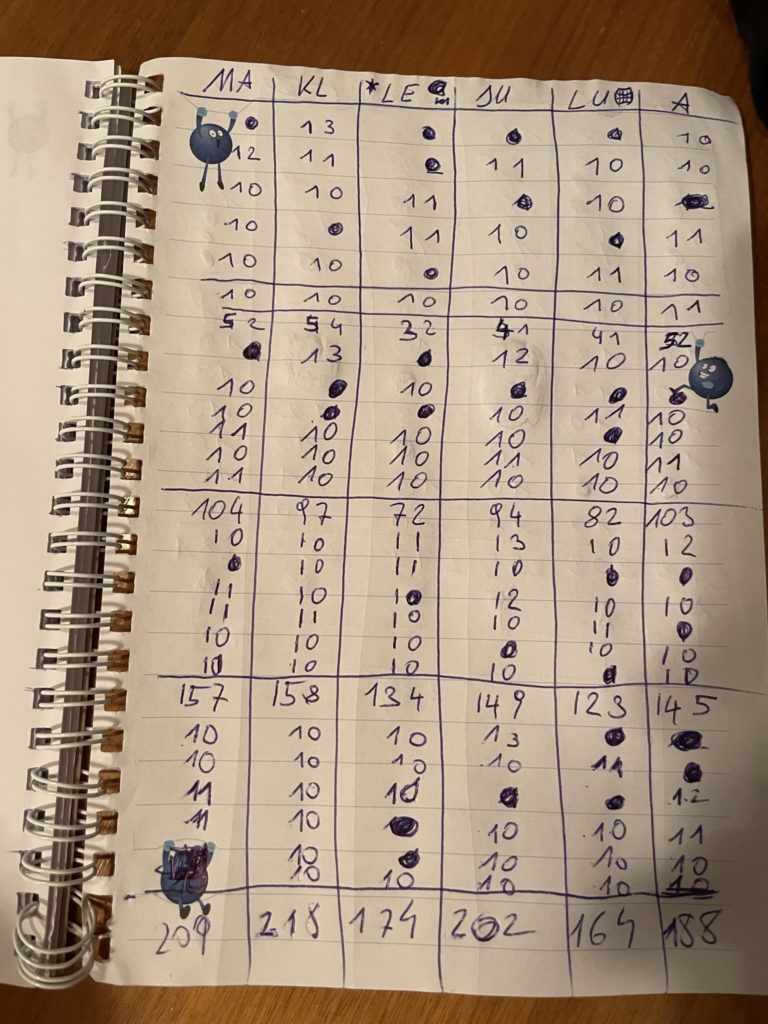 MA KL *LE JU LU A
● 13 ● ● ● 10
12 11 ● 11 10 10
10 10 11 ● 10 ●
10 ● 11 10 ● 11
10 10 ● 10 11 10
10 10 10 10 10 11
52 54 32 41 41 52
● 13 ● 12 10 10
10 ● 10 ● ● ●
10 ● ● 10 11 10
11 10 10 10 ● 10
10 10 10 11 10 11
11 10 10 10 10 10
104 97 72 94 82 103
10 10 11 13 10 12
● 10 11 10 ● ●
11 10 10 12 10 10
11 11 10 10 11 ●
10 10 10 ● 10 10
10 10 10 10 ● 10
157 158 134 149 123 145
10 10 10 13 ● ●
10 10 10 10 11 ●
11 10 10 ● ● 12
11 10 ● 10 10 11
10 ● 10 10 10
10 10 10 10 10
209 218 174 202 164 188